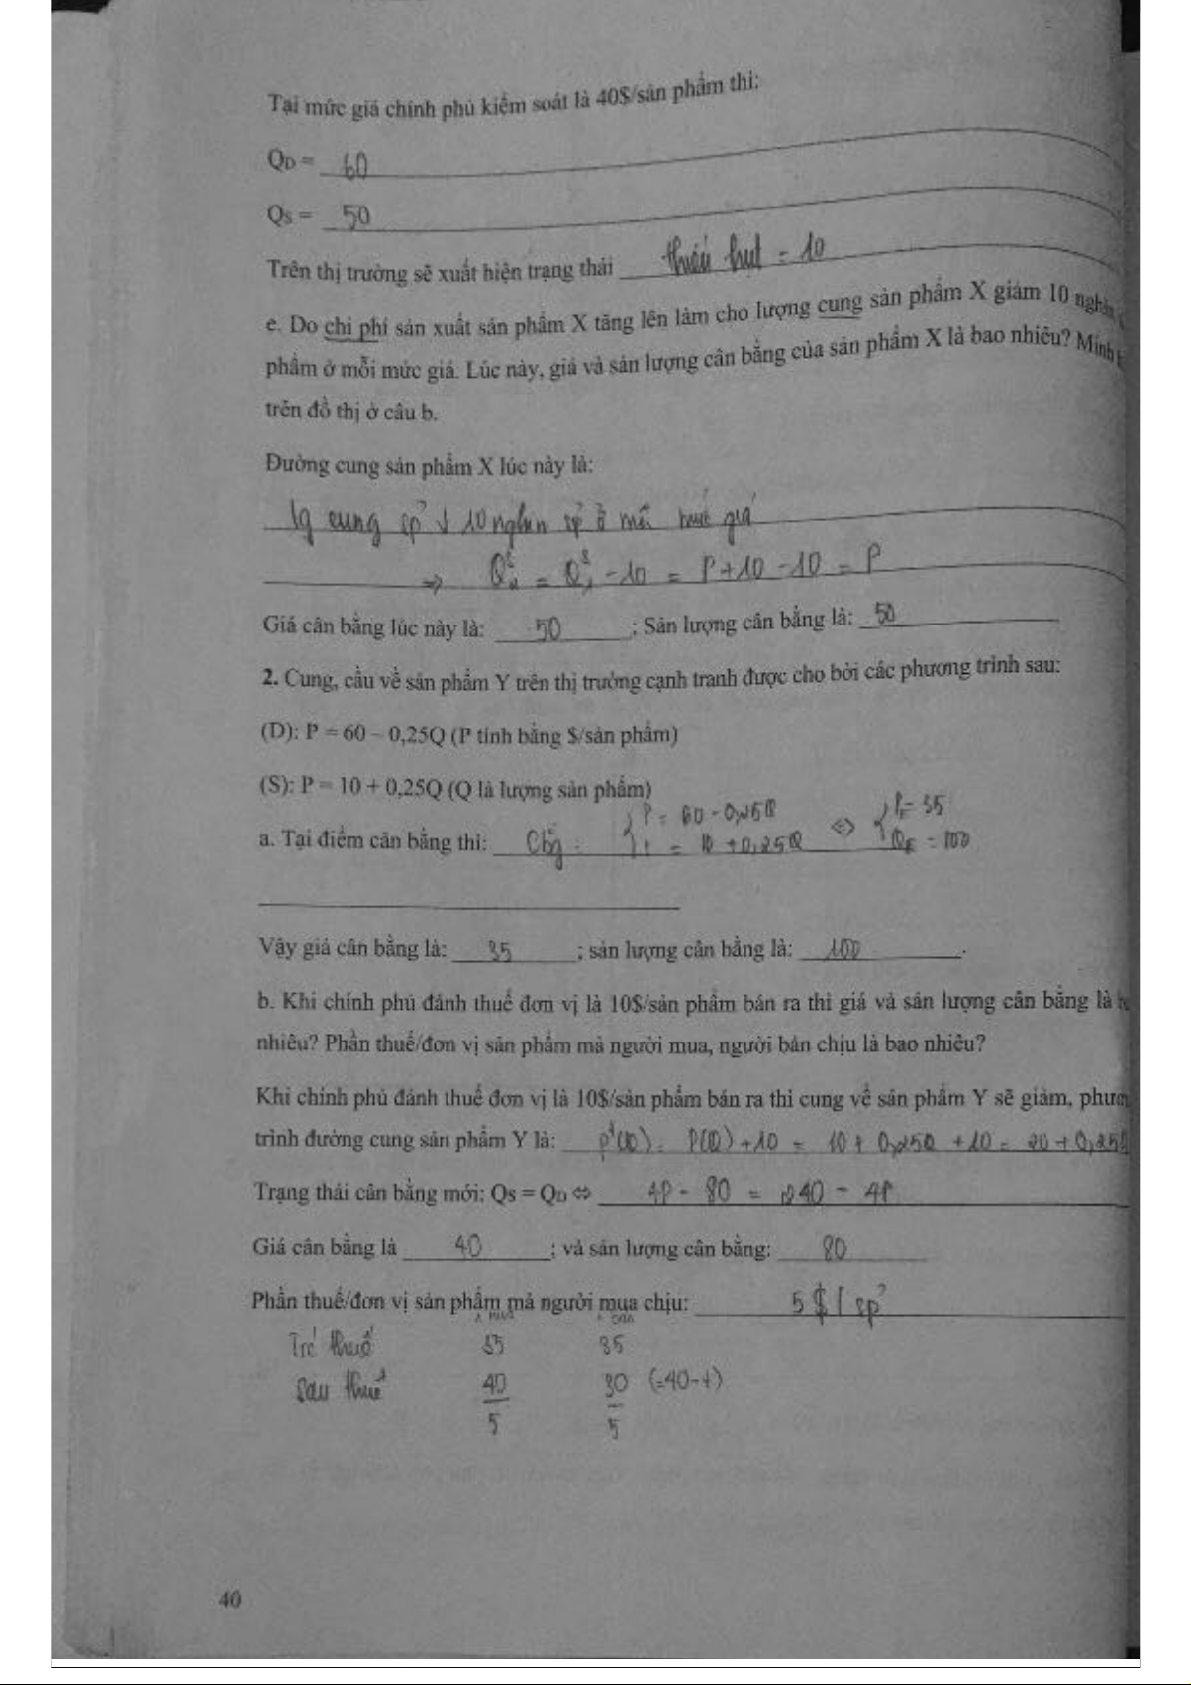 Tại mức giá chính phủ kiểm soát là 40$/sản phẩm thì:
QD = 60
QS = 50
Trên thị trường sẽ xuất hiện trạng thái thiếu hụt = 10
e. Do chi phí sản xuất sản phẩm X tăng lên làm cho lượng cung sản phẩm X giảm 10 nghìn
phẩm ở mỗi mức giá. Lúc này, giá và sản lượng cân bằng của sản phẩm X là bao nhiêu? Minh
trên đồ thị ở câu b.
Đường cung sản phẩm X lúc này là:
lg cung sp ↓ 10 nghìn sp ở mỗi mức giá
⇒ = - 10 = P + 10 - 10 = P
Giá cân bằng lúc này là: 50 ; Sản lượng cân bằng là: 50
2. Cung, cầu về sản phẩm Y trên thị trường cạnh tranh được cho bởi các phương trình sau:
(D): P = 60 – 0,25Q (P tính bằng $/sản phẩm)
(S): P = 10 + 0,25Q (Q là lượng sản phẩm)
P = 60 - 0,25Q ⇔ PE = 35
a. Tại điểm cân bằng thì: = 10 + 0,25Q QE = 100
Vậy giá cân bằng là: 35 ; sản lượng cân bằng là: 100 .
b. Khi chính phủ đánh thuế đơn vị là 10$/sản phẩm bán ra thì giá và sản lượng cân bằng là
nhiêu? Phần thuế/đơn vị sản phẩm mà người mua, người bán chịu là bao nhiêu?
Khi chính phủ đánh thuế đơn vị là 10$/sản phẩm bán ra thì cung về sản phẩm Y sẽ giảm,
trình đường cung sản phẩm Y là: P(Q) + 10 = 10 + 0,25Q + 10 = 20 + 0,25Q
Trạng thái cân bằng mới: QS = QD ⇔ 4P - 80 = 240 - 4P
Giá cân bằng là 40 ; và sản lượng cân bằng: 80
Phần thuế/đơn vị sản phẩm mà người mua chịu: 5 $ / sp
Trc thuế 35 35
Sau thuế 40 30 (=40-t)
5 5
40